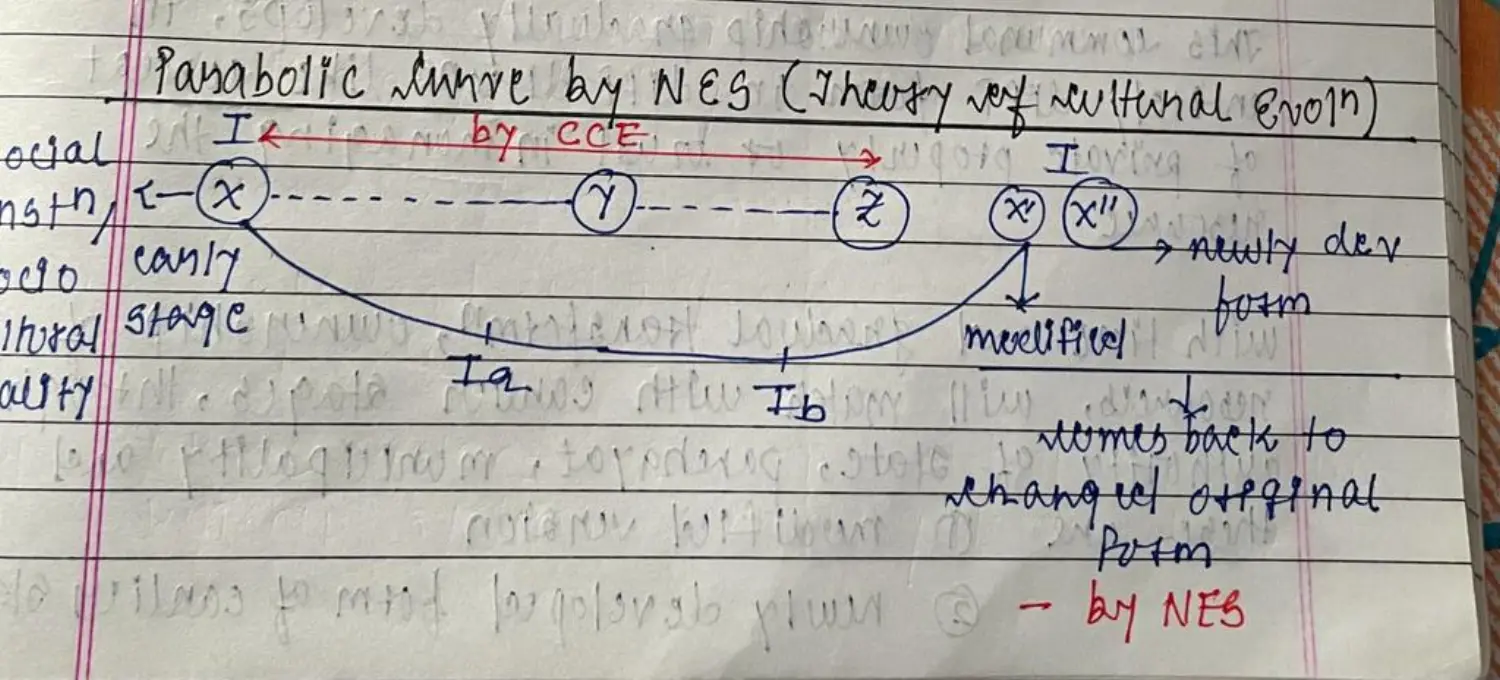 Parabolic curve by NES (Theory of cultural Evoln)
I by CCE I
ocial
nstn, X Y Z X' X"
early → newly dev
ocio form
stage
ltural modified
ality Ia Ib
comes back to
changed original
form
- by NES